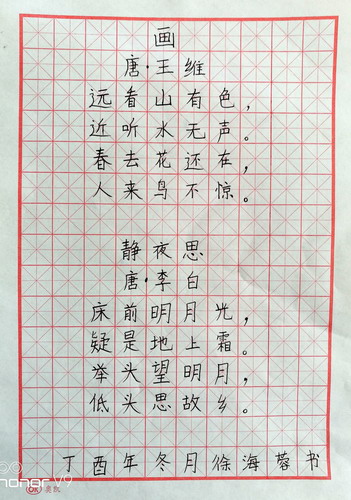 画
唐·王维
远看山有色，
近听水无声。
春去花还在，
人来鸟不惊。
静夜思
唐·李白
床前明月光，
疑是地上霜。
举头望明月，
低头思故乡。
丁酉年冬月徐海蓉书
honor V9
OK